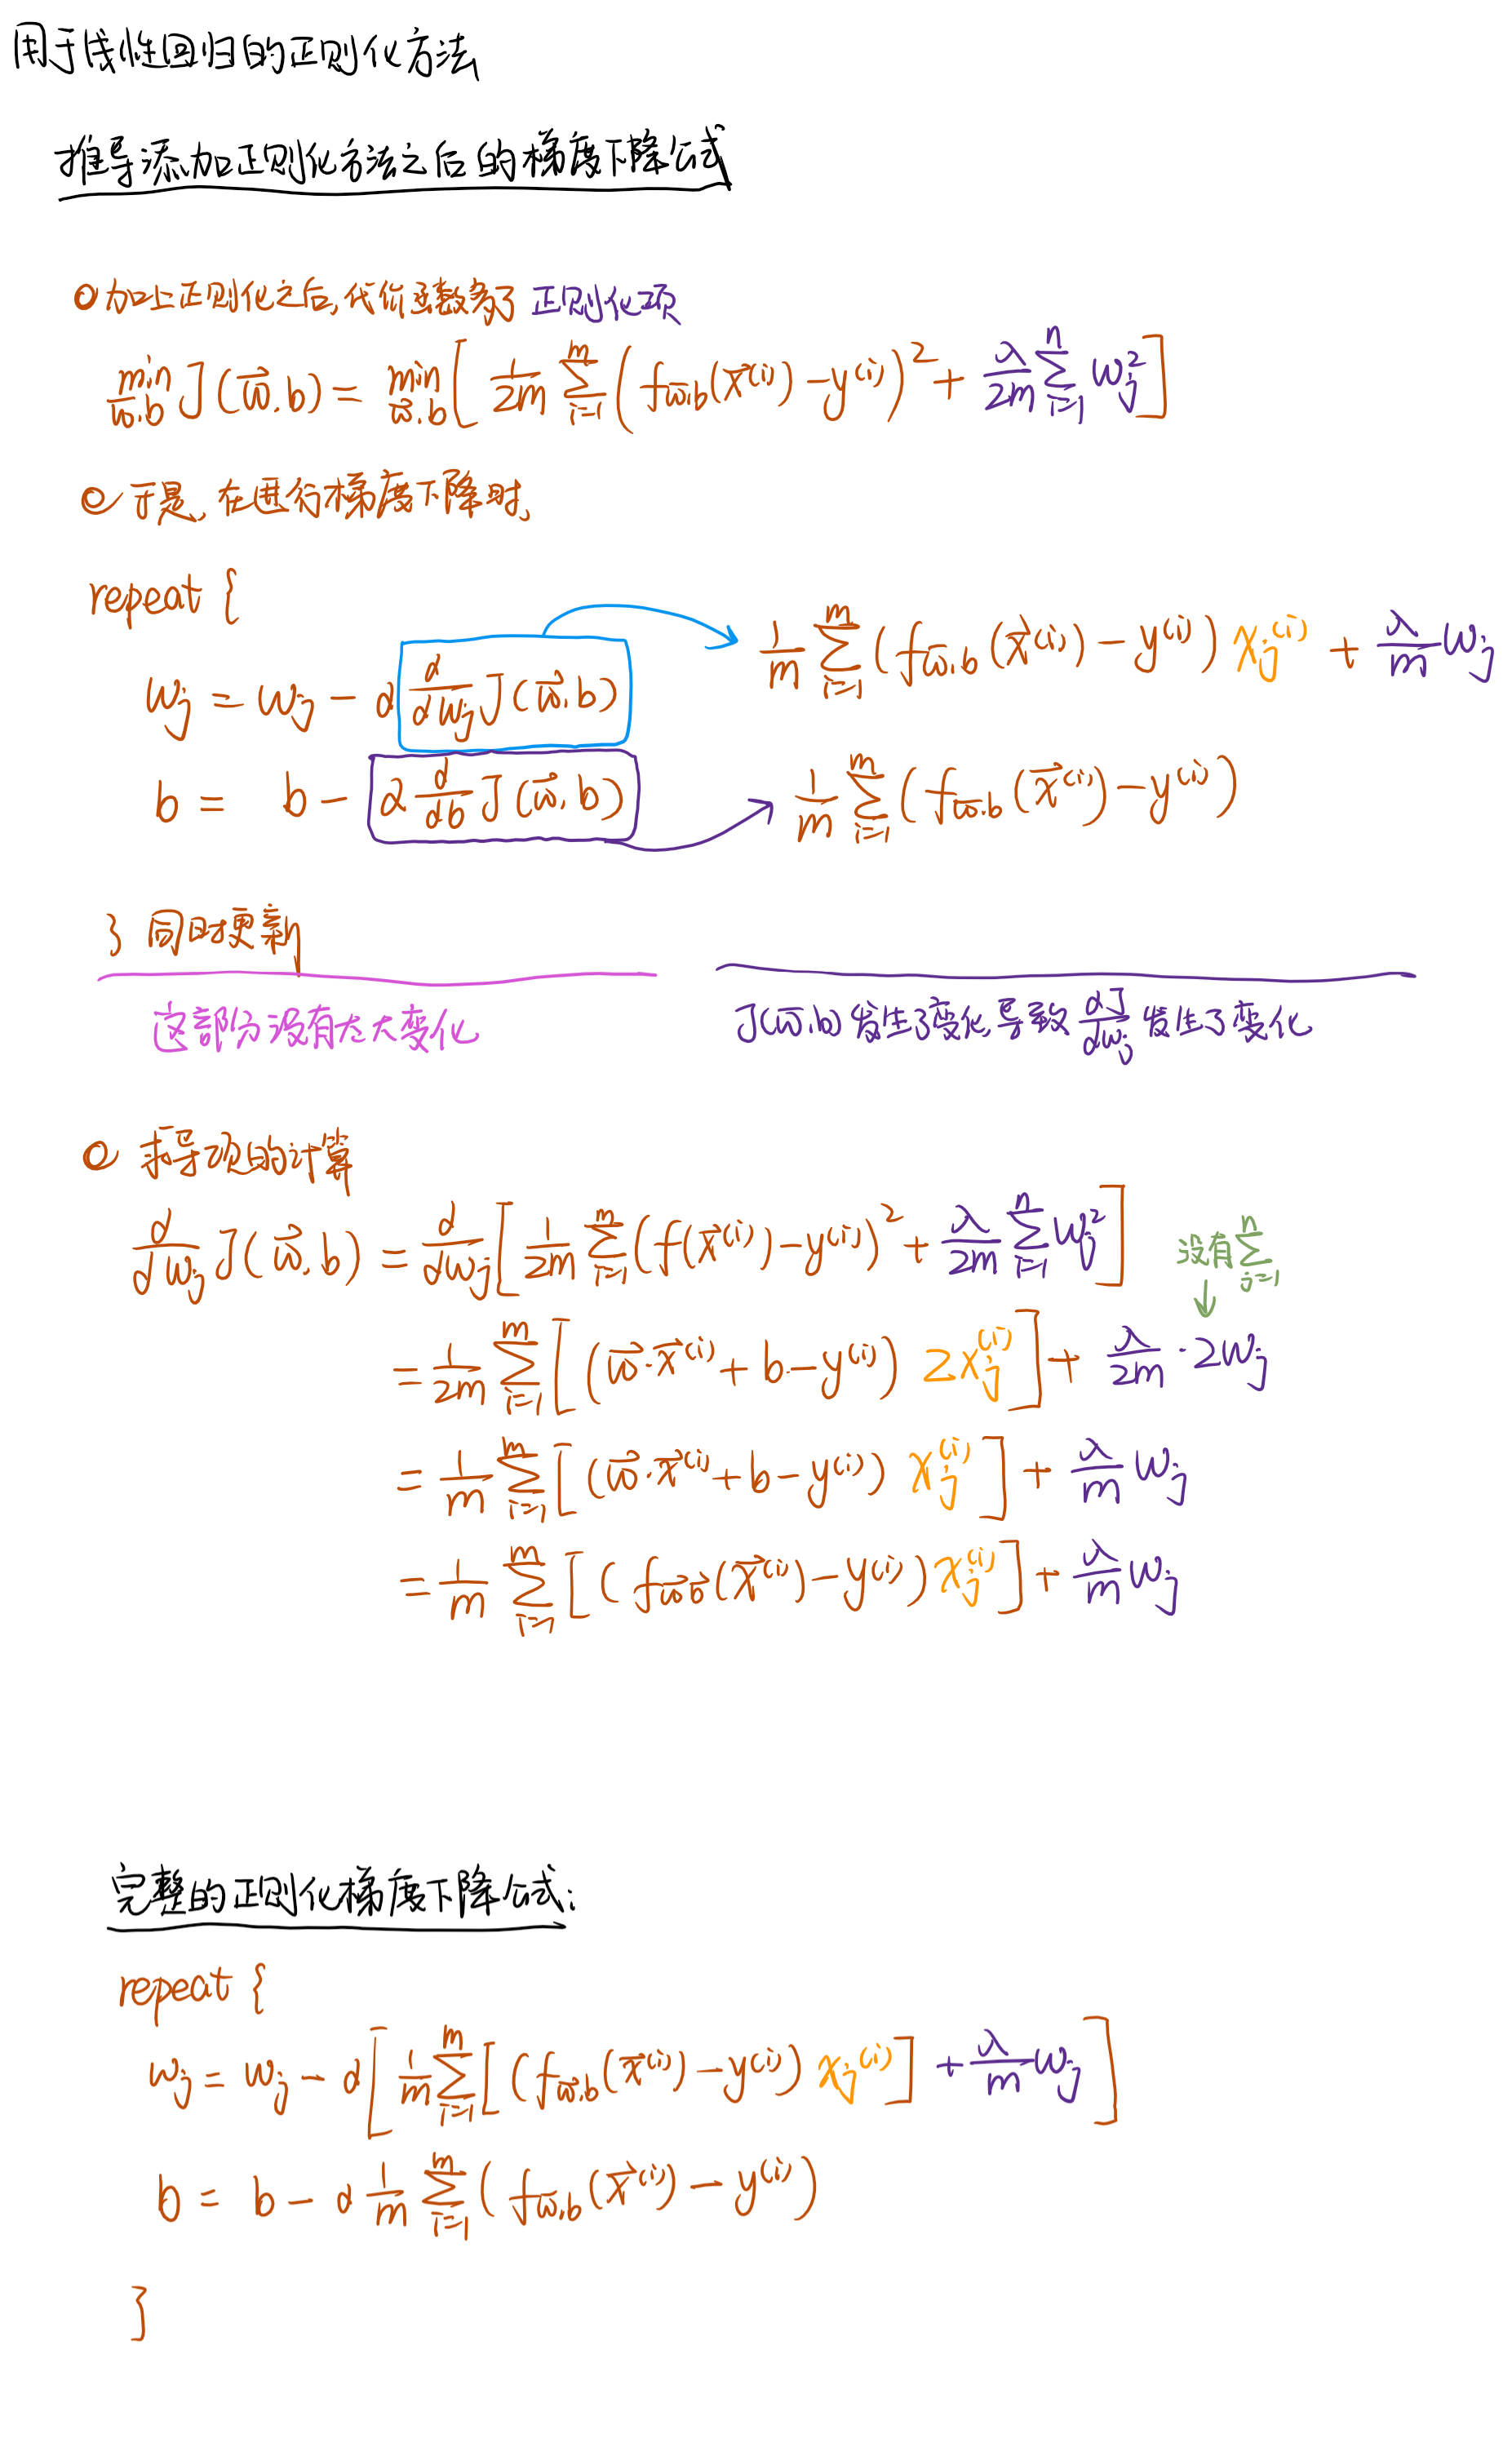 用于线性回归的正则化方法
推导添加正则化方法之后的梯度下降公式
加上正则化之后,代价函数多了 正则化项
min_{w⃗,b} J(w⃗,b) = min_{w⃗,b} [ 1/2m Σ_{i=1}^{m} (f_{w⃗,b}(x⃗^(i)) − y^(i))² + λ/2m Σ_{i=1}^{n} w_j² ]
于是,在进行梯度下降时,
repeat {
w_j = w_j − α d/dw_j J(w⃗,b) → 1/m Σ_{i=1}^{m} (f_{w⃗,b}(x⃗^(i)) − y^(i)) x_j^(i) + λ/m w_j
b = b − α d/db J(w⃗,b) → 1/m Σ_{i=1}^{m} (f_{w⃗,b}(x⃗^(i)) − y^(i))
} 同时更新
这部分没有太大变化
J(w⃗,b) 发生了变化,导致 dJ/dw_j 发生了变化
求导项的计算
d/dw_j J(w⃗,b) = d/dw_j [ 1/2m Σ_{i=1}^{m} (f(x⃗^(i)) − y^(i))² + λ/2m Σ_{i=1}^{n} w_j² ]
没有 Σ_{j=1}^{n} ↓
= 1/2m Σ_{i=1}^{m} [ (w⃗·x⃗^(i) + b − y^(i)) 2x_j^(i) ] + λ/2m · 2w_j
= 1/m Σ_{i=1}^{m} [ (w⃗·x⃗^(i) + b − y^(i)) x_j^(i) ] + λ/m w_j
= 1/m Σ_{i=1}^{m} [ (f_{w⃗,b⃗}(x⃗^(i)) − y^(i)) x_j^(i) ] + λ/m w_j
完整的正则化梯度下降公式:
repeat {
w_j = w_j − α [ 1/m Σ_{i=1}^{m} [ (f_{w⃗,b}(x⃗^(i)) − y^(i)) x_j^(i) ] + λ/m w_j ]
b = b − α 1/m Σ_{i=1}^{m} (f_{w⃗,b}(x⃗^(i)) − y^(i))
}